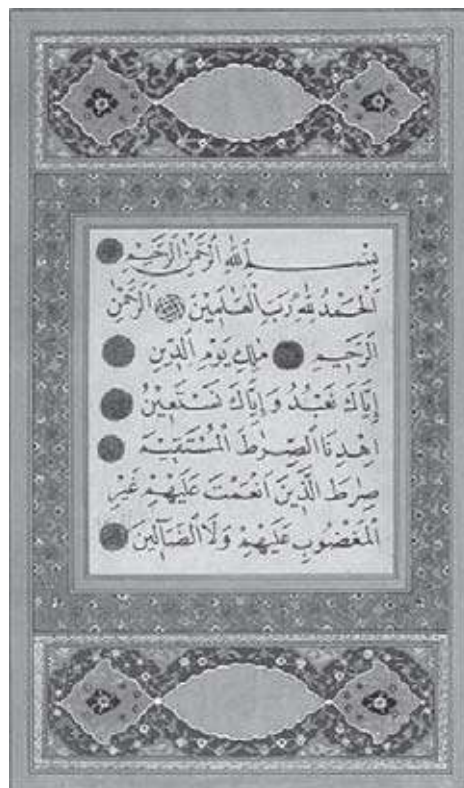 بِسْمِ اللهِ الرَّحْمٰنِ الرَّحِيمِ
اَلْحَمْدُ لِلهِ رَبِّ الْعَالَمِينَ اَلرَّحْمٰنِ
الرَّحِيمِ مٰلِكِ يَوْمِ الدِّينِ
اِيَّاكَ نَعْبُدُ وَاِيَّاكَ نَسْتَعِينُ
اِهْدِنَا الصِّرَاطَ الْمُسْتَقِيمَ
صِرَاطَ الَّذِينَ اَنْعَمْتَ عَلَيْهِمْ غَيْرِ
الْمَغْضُوبِ عَلَيْهِمْ وَلَا الضَّالِّينَ